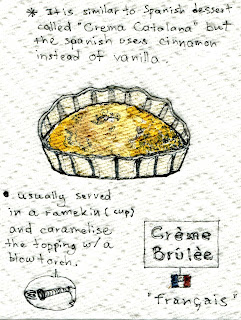 * It is similar to Spanish dessert
called "Crema Catalana" but
the spanish uses cinnamon
instead of vanilla.
• usually served
in a ramekin (cup)
and caramelise
the topping w/a
blowtorch.
Crème
Brûlèe
"français"